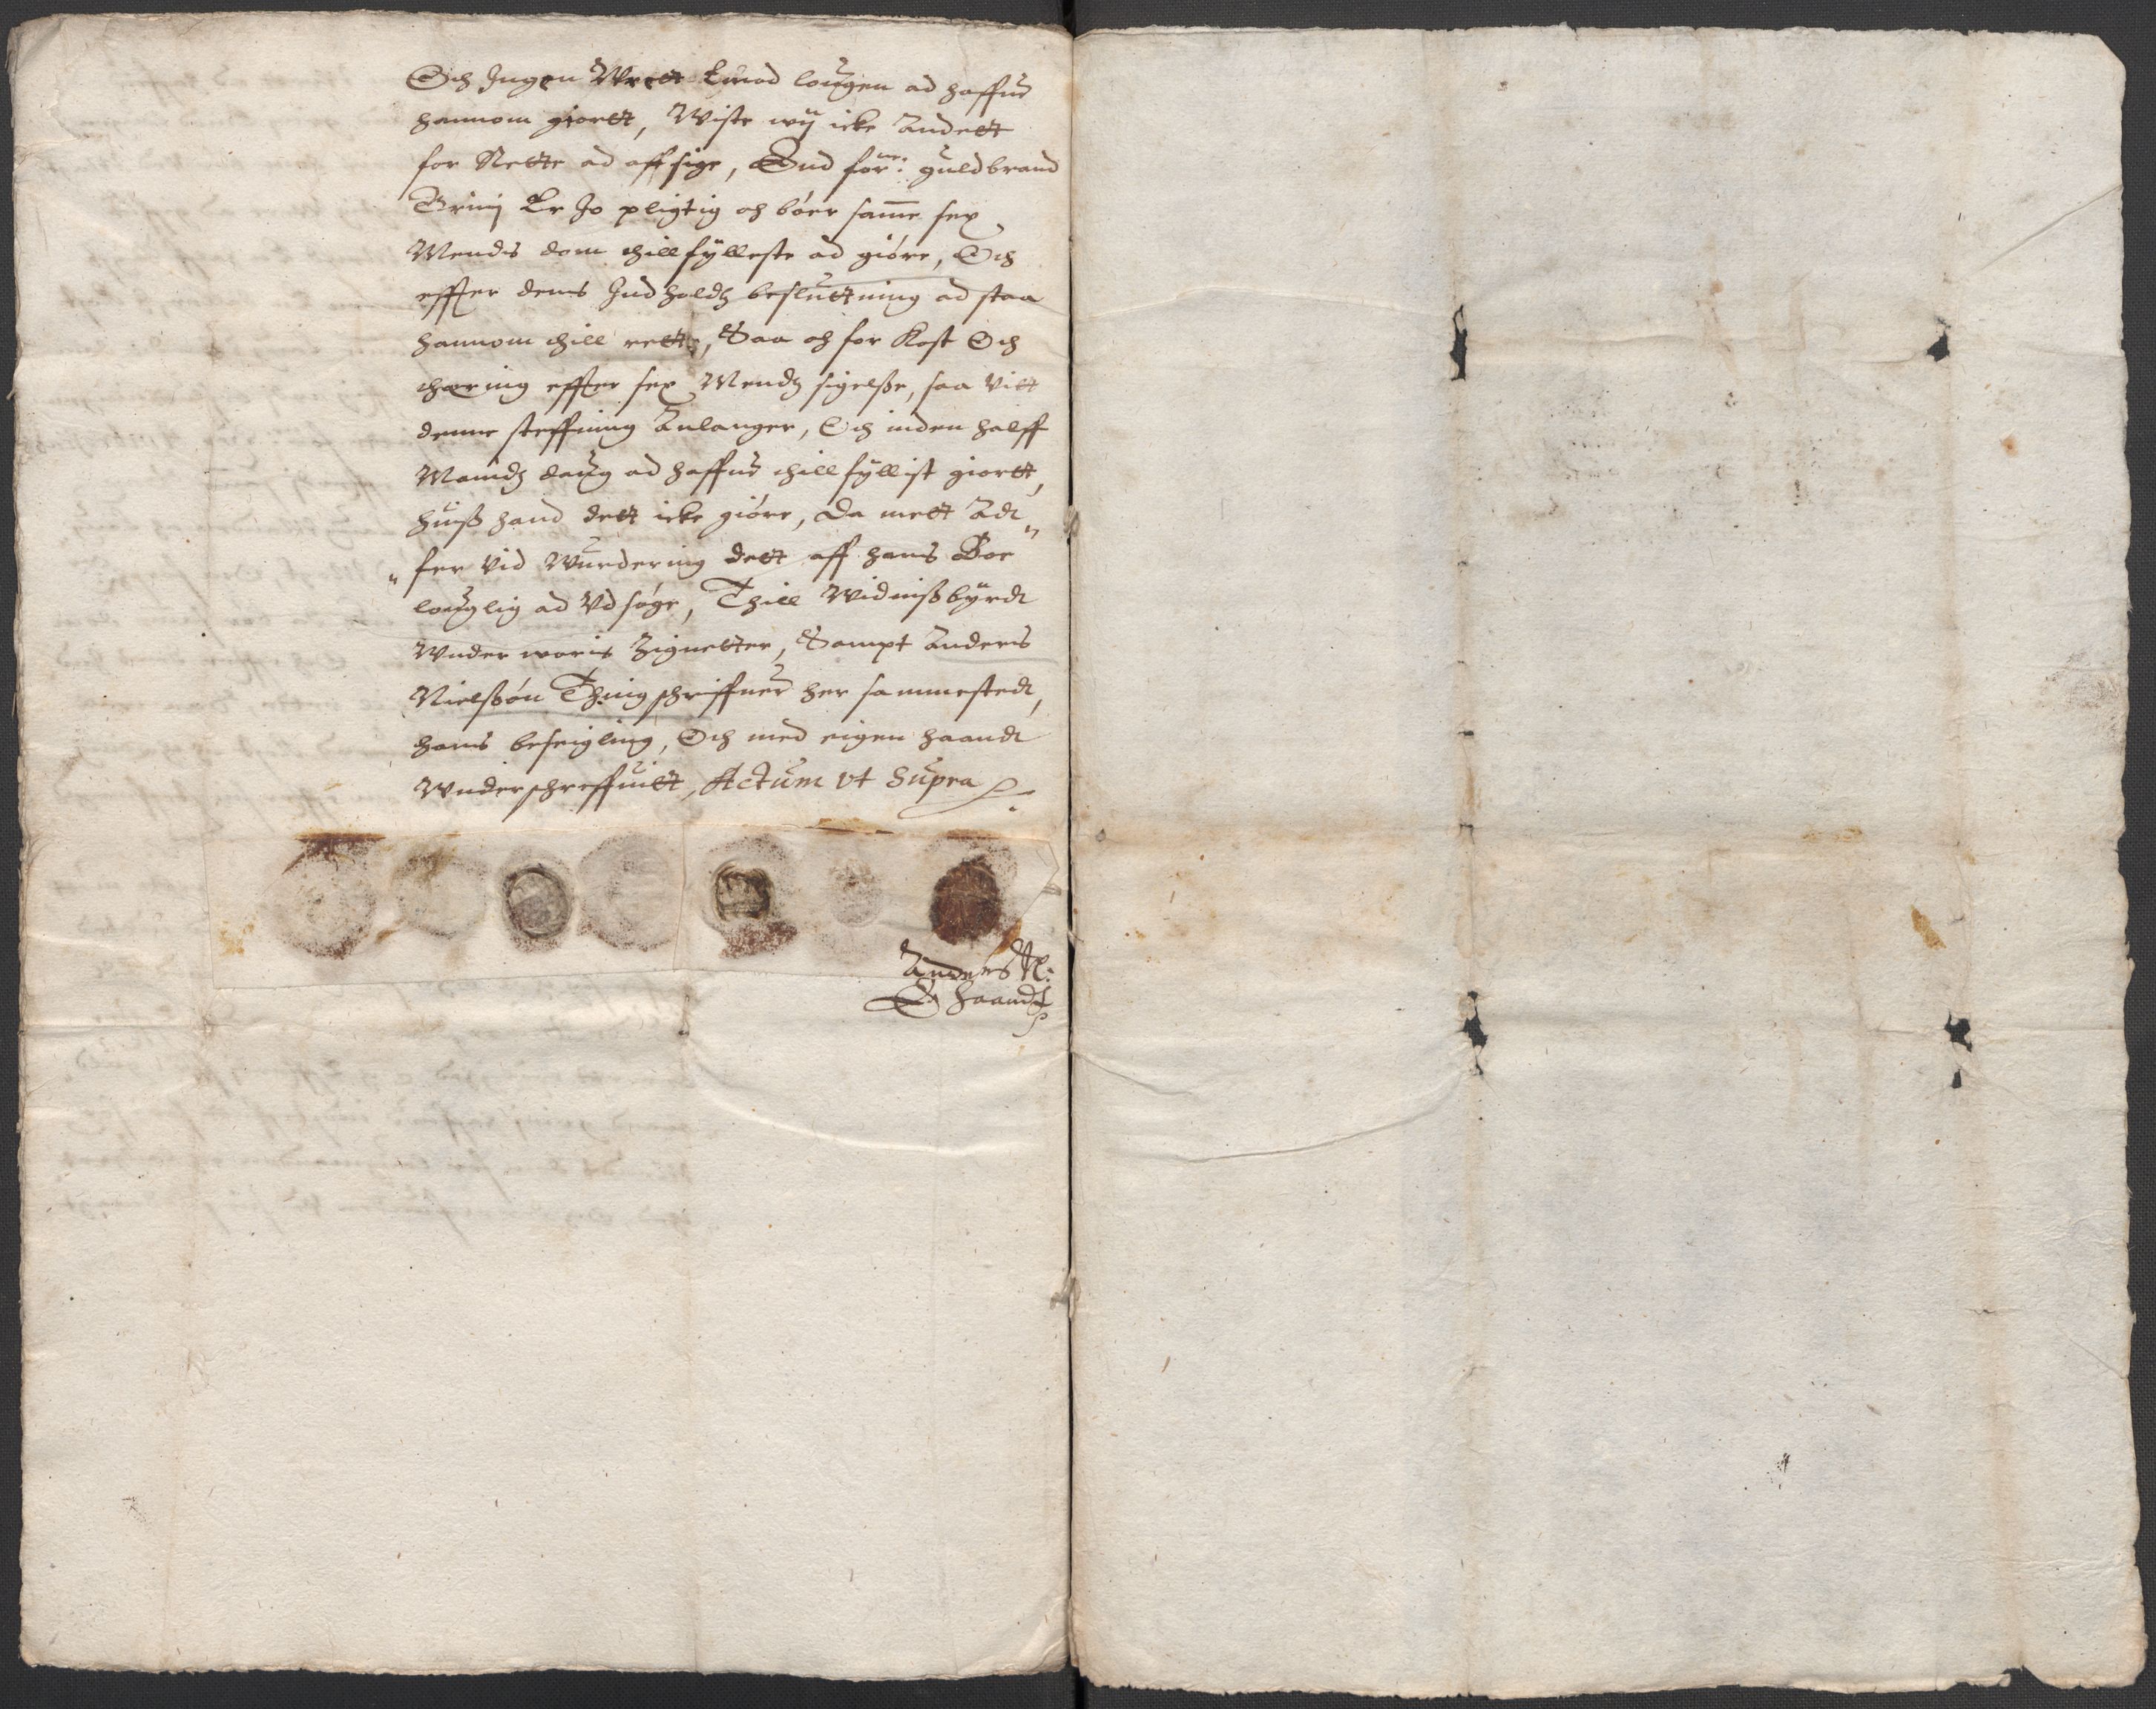 Och Ingen Wrett Emod lougen ad haffue
hannom giortt, Wiste wij icke Andett
for Rette ad affsige, End for:ne guldbrand
Er Jo pligtig och bör samme sex
Mends dom thillfylleste ad giöre, Och
effter dens Indholdz besluttning ad staa
hannom thill rette, Saa och for Kost Och
thæring effter sex Mendz sigelsse, saa Vitt
denne steffning Anlanger, Och inden halff
Maanidz daug ad haffue thillfyllist giortt,
huiss hand dett icke giöre, Da mett Ad„
„fer Vid Wurdering dett aff hans Boe
louglig ad Vdsöge, Thill Widnissbyrdt
Wnder woris Zignetter, Sampt Anders
Nielssön Thingschriffuer her sammestedt,
hans beseigling, Och med eigen haandt
Wnderschreffuitt, Actum vt Supra
Anders N:
E haandt